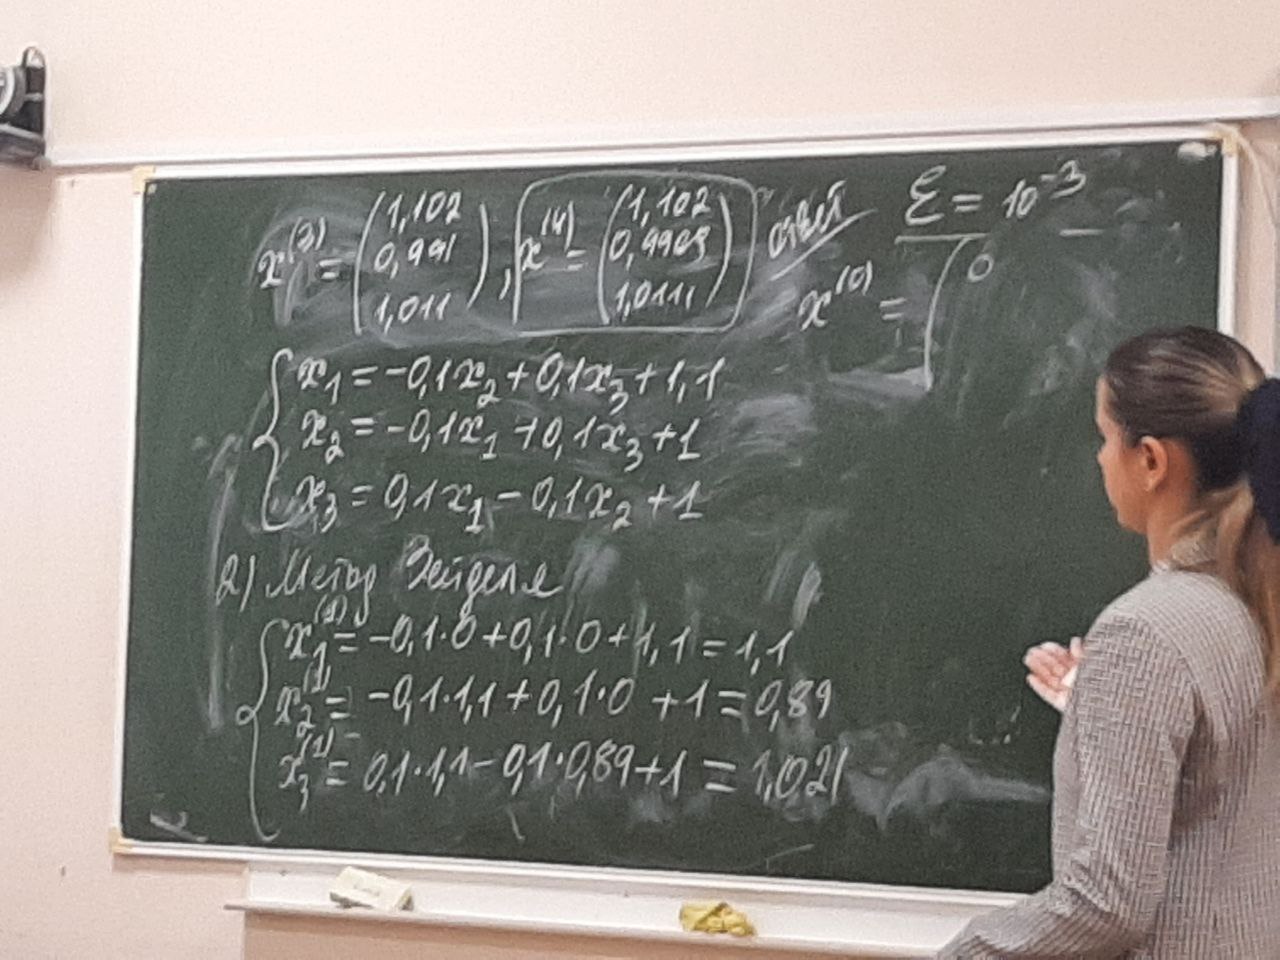 x⁽³⁾ = (1,102 0,991 1,011), x⁽⁴⁾ = (1,102 1,0111) ответ
ε = 10⁻³
x⁽⁰⁾ = (0
x₁ = -0,1x₂ + 0,1x₃ + 1,1
x₂ = -0,1x₁ + 0,1x₃ + 1
x₃ = 0,1x₁ - 0,1x₂ + 1
2) Метод Зейделя
x₁⁽¹⁾ = -0,1·0 + 0,1·0 + 1,1 = 1,1
x₂⁽¹⁾ = -0,1·1,1 + 0,1·0 + 1 = 0,89
x₃⁽¹⁾ = 0,1·1,1 - 0,1·0,89 + 1 = 1,021